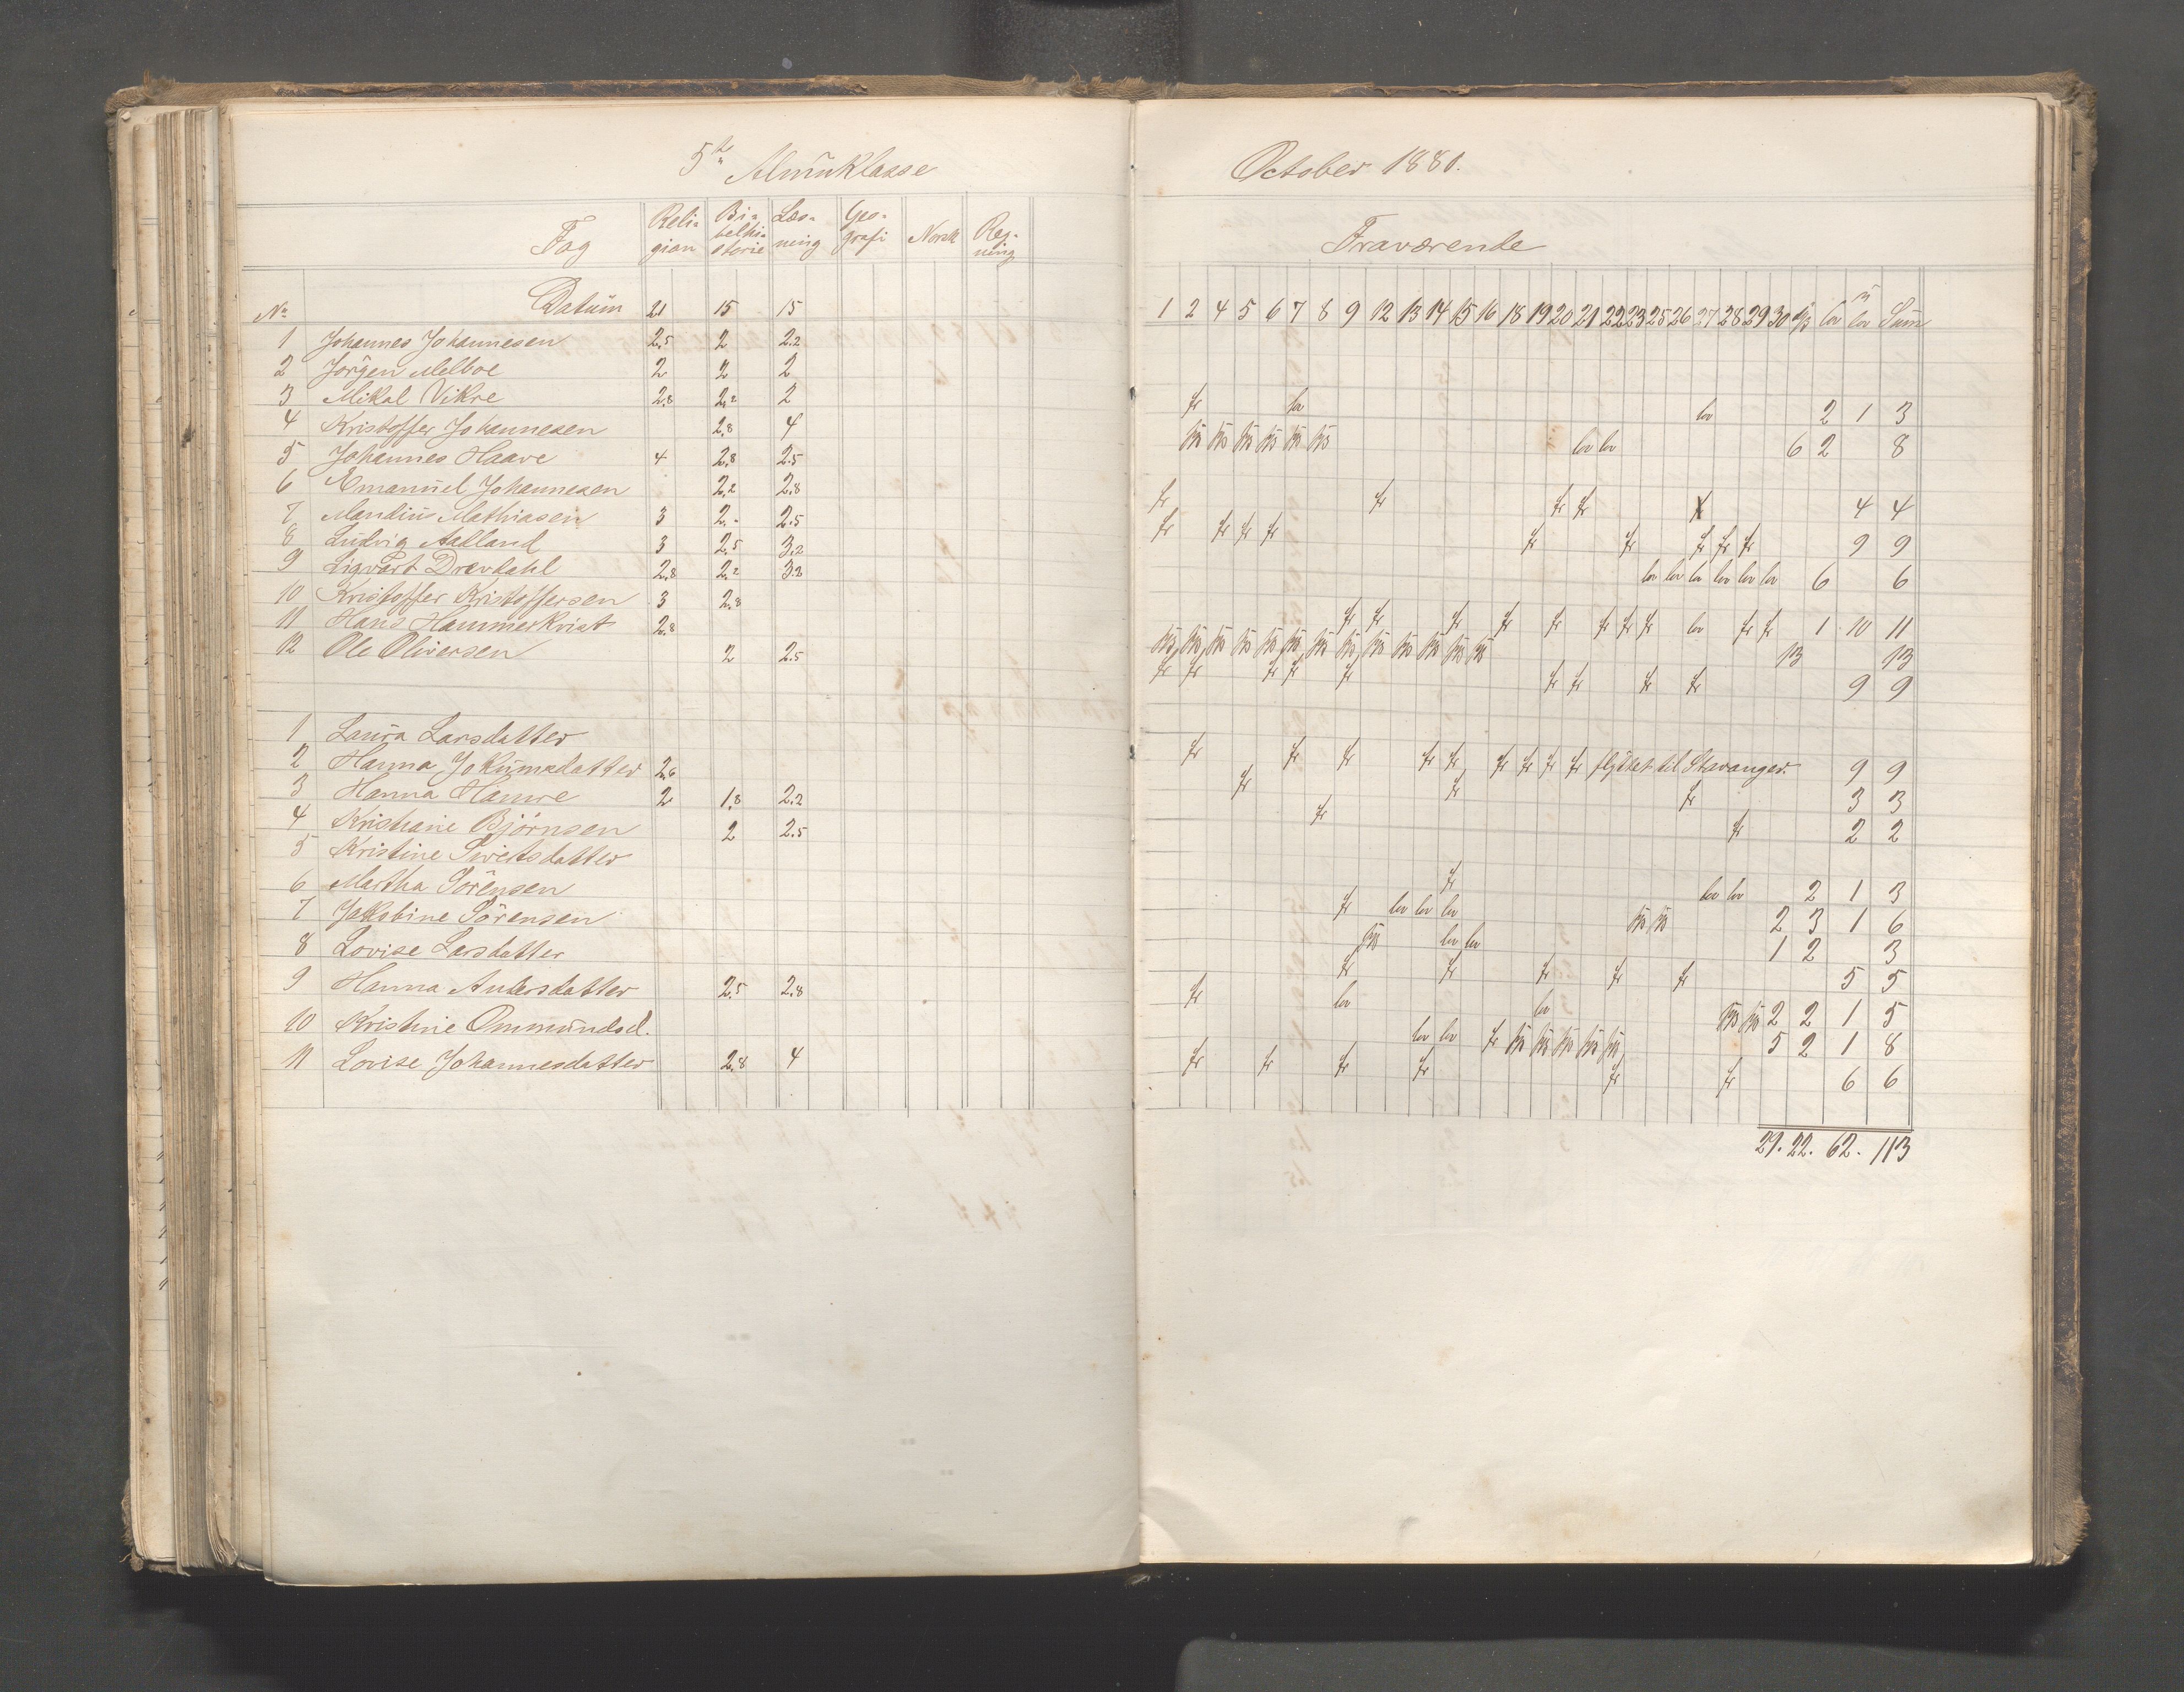 5te Almuklasse
Fag Reli-gion Bi-belhi-storie Læs-ning Geo-grafi Norsk Reg-ning
No Datum 21 15 15
1 Johannes Johannesen 2,5 2 2,2
2 Jørgen Melboe 2 2 2
3 Mikal Vikre 2,8 2,2 2
4 Kristoffer Johannesen 2,8 4
5 Johannes Haave 4 2,8 2,5
6 Emanuel Johannesen 2,2 2,8
7 Mandius Mathiasen 3 2,- 2,5
8 Ludvig Aadland 3 2,5 3,2
9 Sigvart Drævdahl 2,8 2,2 3,2
10 Kristoffer Kristoffersen 3 2,8
11 Hans Hammerkvist 2,8
12 Ole Oliversen 2 2,5
1 Laura Larsdatter
2 Hanna Jokumsdatter 2,6
3 Hanna Hauvre 2 1,8 2,2
4 Kristiane Bjørnsen 2 2,5
5 Kristine Sivertsdatter
6 Martha Sørensen
7 Jakobine Sørensen
8 Lovise Larsdatter
9 Hanna Andersdatter 2,5 2,8
10 Kristine Ommundsd.
11 Lovise Johannesdatter 2,8 4
October 1880.
Fraværende
1 2 4 5 6 7 8 9 12 13 14 15 16 18 19 20 21 22 23 25 26 27 28 29 30 lov lov Sum
fr lov lov 2 1 3
lov lov 6 2 8
fr fr fr fr 4 4
fr fr fr fr fr fr fr fr fr 9 9
lov lov lov lov lov lov 6 6
fr fr fr fr fr fr fr fr lov fr fr 1 10 11
13 13
fr fr fr fr fr fr fr fr fr 9 9
fr fr fr fr fr fr fr fr fr flyttet til Stavanger. 9 9
fr fr fr 3 3
fr fr 2 2
fr lov lov 2 1 3
fr lov lov lov 2 3 1 6
lov lov 1 2 3
fr fr fr fr fr 5 5
fr lov lov 2 2 1 5
lov lov fr 5 2 1 8
fr fr fr fr fr fr 6 6
29. 22. 62. 113